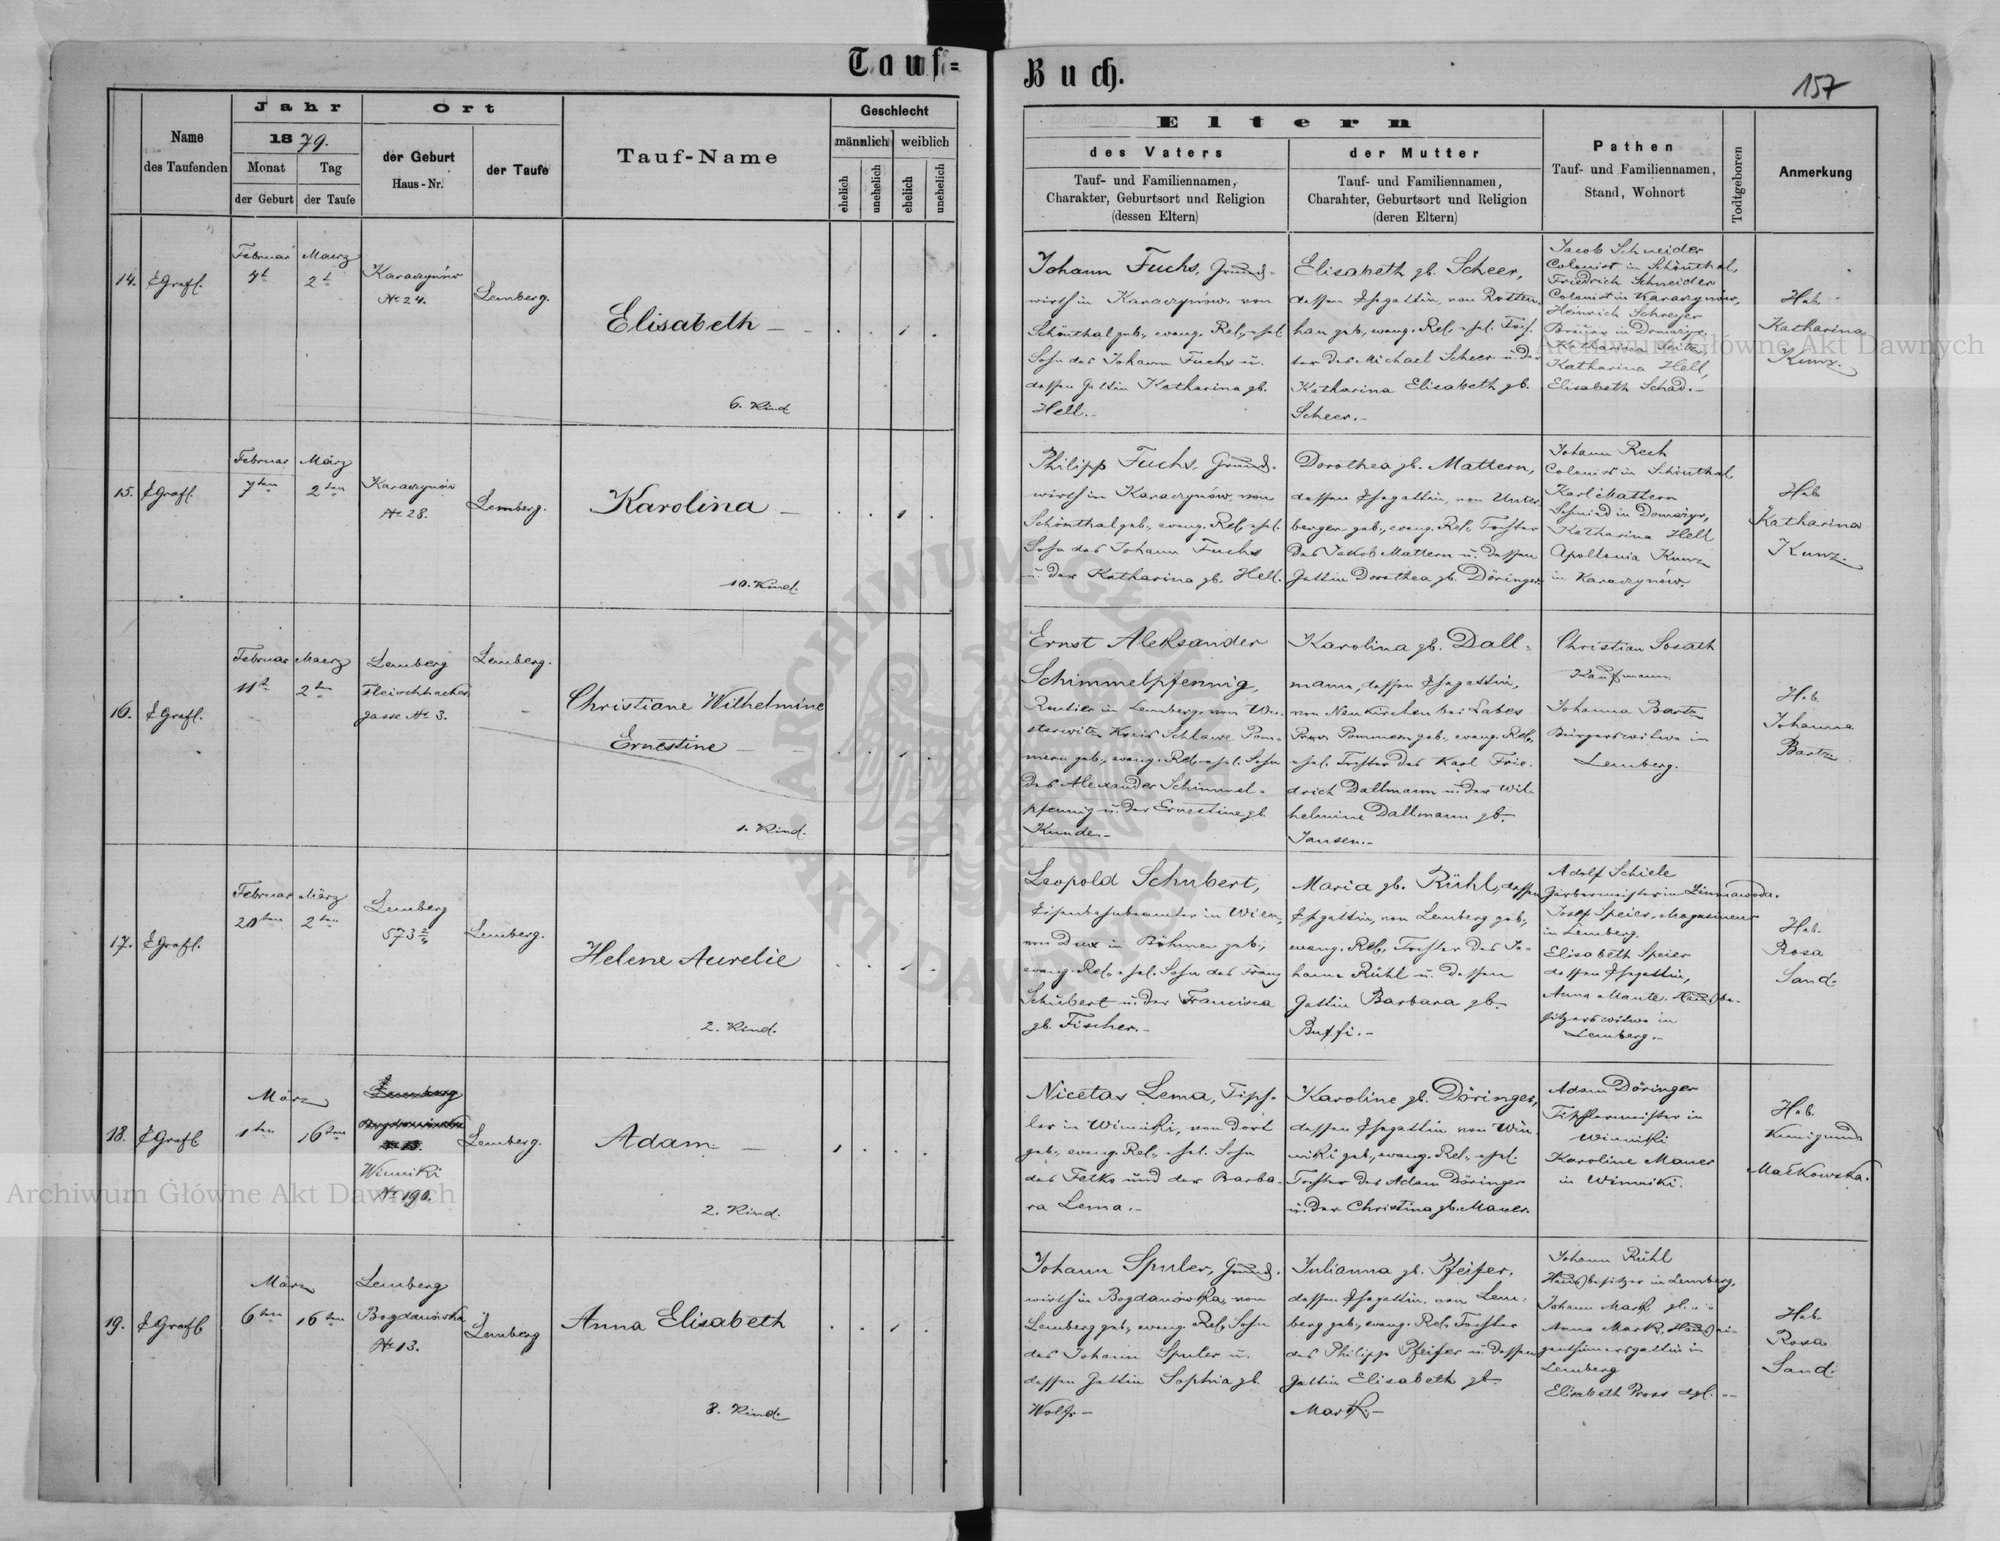 Tauf=
Buch.
157
Name
des Taufenden
Jahr
1879.
Monat
der Geburt
Tag
der Taufe
Ort
der Geburt
Haus-Nr.
der Taufe
Tauf-Name
Geschlecht
männlich
weiblich
ehelich
unehelich
ehelich
unehelich
Eltern
des Vaters
Tauf- und Familiennamen,
Charakter, Geburtsort und Religion
(dessen Eltern)
der Mutter
Tauf- und Familiennamen,
Charahter, Geburtsort und Religion
(deren Eltern)
Pathen
Tauf- und Familiennamen,
Stand, Wohnort
Todtgeboren
Anmerkung
14.
Februar
7t
Maerz
2t
Karaczynów
No 24.
Lemberg.
Elisabeth
6. Kind
Johann Fuchs, Grund-
wirth in Karaczynów, von
Schönthal geb., evang. Rel., ehel.
Sohn des Johann Fuchs u.
dessen Gattin Katharina gb.
Hell.
Elisabeth gb. Scheer,
dessen Ehegattin, von Rotten
han geb., evang. Rel., ehel. Toch-
ter des Michael Scheer u. de
Katharina Elisabeth gb.
Scheer.
Jacob Schneider
Colonist in Schönthal,
Friedrich Schneider
Colonist in Karaczynów,
Heinrich Schreyer
in Domazyr,
Katharina
Katharina Hell,
Elisabeth Schad.
Heb.
Katharina
Kunz.
15.
Februar
7ten
März
2ten
Karaczynów
No 28.
Lemberg.
Karolina
10. Kind.
Philipp Fuchs, Grund-
wirth in Karaczynów, von
Schönthal geb., evang. Rel., ehel.
Sohn des Johann Fuchs
u. der Katharina gb. Hell.
Dorothea gb. Mattern,
dessen Ehegattin, von Unter
bergen geb., evang. Rel., Tochter
des Jakob Mattern u. dessen
Gattin Dorothea gb. Döringer
Johann Rech
Colonist in Schönthal
Karl Mattern
Schmied in Domazyr,
Katharina Hell
Apollonia Kunz
in Karaczynów.
Heb.
Katharina
Kunz.
16.
Februar
11t
Maerz
2ten
Lemberg
Fleischhacker
gasse No 3.
Lemberg.
Christiane Wilhelmine
Ernestine
1. Kind.
Ernst Aleksander
Schimmelpfennig,
Rentier in Lemberg, von Wu-
sterwitz Kreis Schlawe Pom-
mern geb., evang. Rel. ehel. Sohn
des Alexander Schimmel-
pfennig u. der Ernestine gb.
Kunde.
Karolina gb. Dall-
mann, dessen Ehegattin,
von Neukirchen bei Labes
Prov. Pommern geb., evang. Rel.,
ehel. Tochter des Karl Frie-
drich Dallmann u. der Wil-
helmine Dallmann gb.
Jansen.
Christian Sosath
Kaufmann
Johanna Bartz
Bürgerswitwe in
Lemberg.
Heb.
Johanna
Bartz
17.
Februar
20ten
März
2ten
Lemberg
573 2/4
Lemberg.
Helene Aurelie
2. Kind.
Leopold Schubert,
Eisenbahnbeamter in Wien,
von Dux in Böhmen geb.,
evang. Rel., ehel. Sohn des Franz
Schubert u. der Francisca
gb. Fischer.
Maria gb. Rühl, dessen
Ehegattin, von Lemberg geb.,
evang. Rel., Tochter des Jo-
hann Rühl u. dessen
Gattin Barbara gb.
Buffi.
Adolf Schiele
Gärbermeister in Zimnawoda.
Josef Speier, Magazineur
in Lemberg.
Elisabeth Speier
dessen Ehegattin,
Anna Mante, Hausbe-
sitzerswitwe in
Lemberg.
Heb.
Rosa
Sand.
18.
März
1ten
16ten
Winniki
No 190.
Lemberg.
Adam
2. Kind.
Nicetas Lema, Tisch-
ler in Winniki, von dort
geb., evang. Rel., ehel. Sohn
des Felko und der Barba-
ra Lema.
Karoline gb. Döringer,
dessen Ehegattin von Win-
niki geb., evang. Rel., ehel.
Tochter des Adam Döringer
u. der Christina gb. Mauer.
Adam Döringer
Tischlermeister in
Winniki
Karoline Mauer
in Winniki.
Heb.
Kunigunde
Małkowska.
19.
März
6ten
16ten
Lemberg
Bogdanówka
No 13.
Lemberg
Anna Elisabeth
8. Kind.
Johann Spuler, Grund-
wirth in Bogdanówka, von
Lemberg geb., evang. Rel., Sohn
des Johann Spuler u.
dessen Gattin Sophia gb.
Wolf.
Julianna gb. Pfeifer,
dessen Ehegattin, von Lem-
berg geb., evang. Rel., Tochter
des Philipp Pfeifer u. dessen
Gattin Elisabeth gb.
Mark.
Johann Rühl
Hausbesitzer in Lemberg,
Johann Mark
Anna Mark, Hausei-
genthümersgattin in
Lemberg
Elisabeth Pross dgl.
Heb.
Rosa
Sand.
Archiwum Główne Akt Dawnych
Archiwum Główne Akt Dawnych
ARCHIWUM GŁÓWNE
AKT DAWNYCH